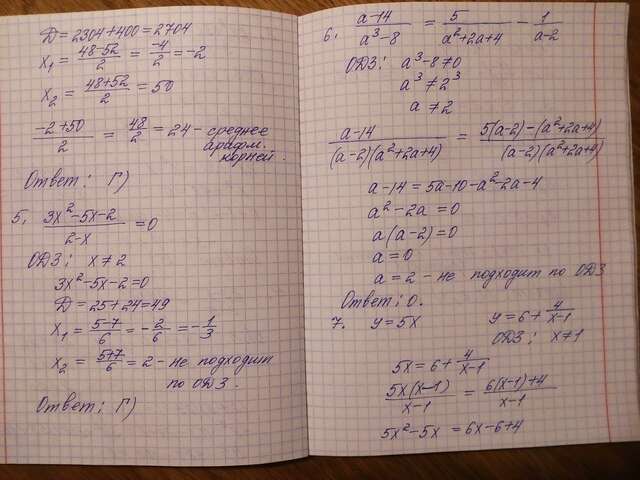 D = 2304 + 400 = 2704
x₁ = (48-52)/2 = -4/2 = -2
x₂ = (48+52)/2 = 50
(-2+50)/2 = 48/2 = 24 - среднее
арифм.
корней.
Ответ: Г)
5. (3x²-5x-2)/(2-x) = 0
ОДЗ: x ≠ 2
3x²-5x-2=0
D = 25+24=49
x₁ = (5-7)/6 = -2/6 = -1/3
x₂ = (5+7)/6 = 2 - не подходит
по ОДЗ.
Ответ: Г)
6. (a-14)/(a³-8) = 5/(a²+2a+4) - 1/(a-2)
ОДЗ: a³-8≠0
a³ ≠ 2³
a ≠ 2
(a-14)/((a-2)(a²+2a+4)) = (5(a-2)-(a²+2a+4))/((a-2)(a²+2a+4))
a-14 = 5a-10-a²-2a-4
a²-2a=0
a(a-2)=0
a=0
a=2 - не подходит по ОДЗ
Ответ: 0.
7. y=5x y=6+4/(x-1)
ОДЗ: x≠1
5x = 6+4/(x-1)
5x(x-1)/(x-1) = (6(x-1)+4)/(x-1)
5x²-5x = 6x-6+4